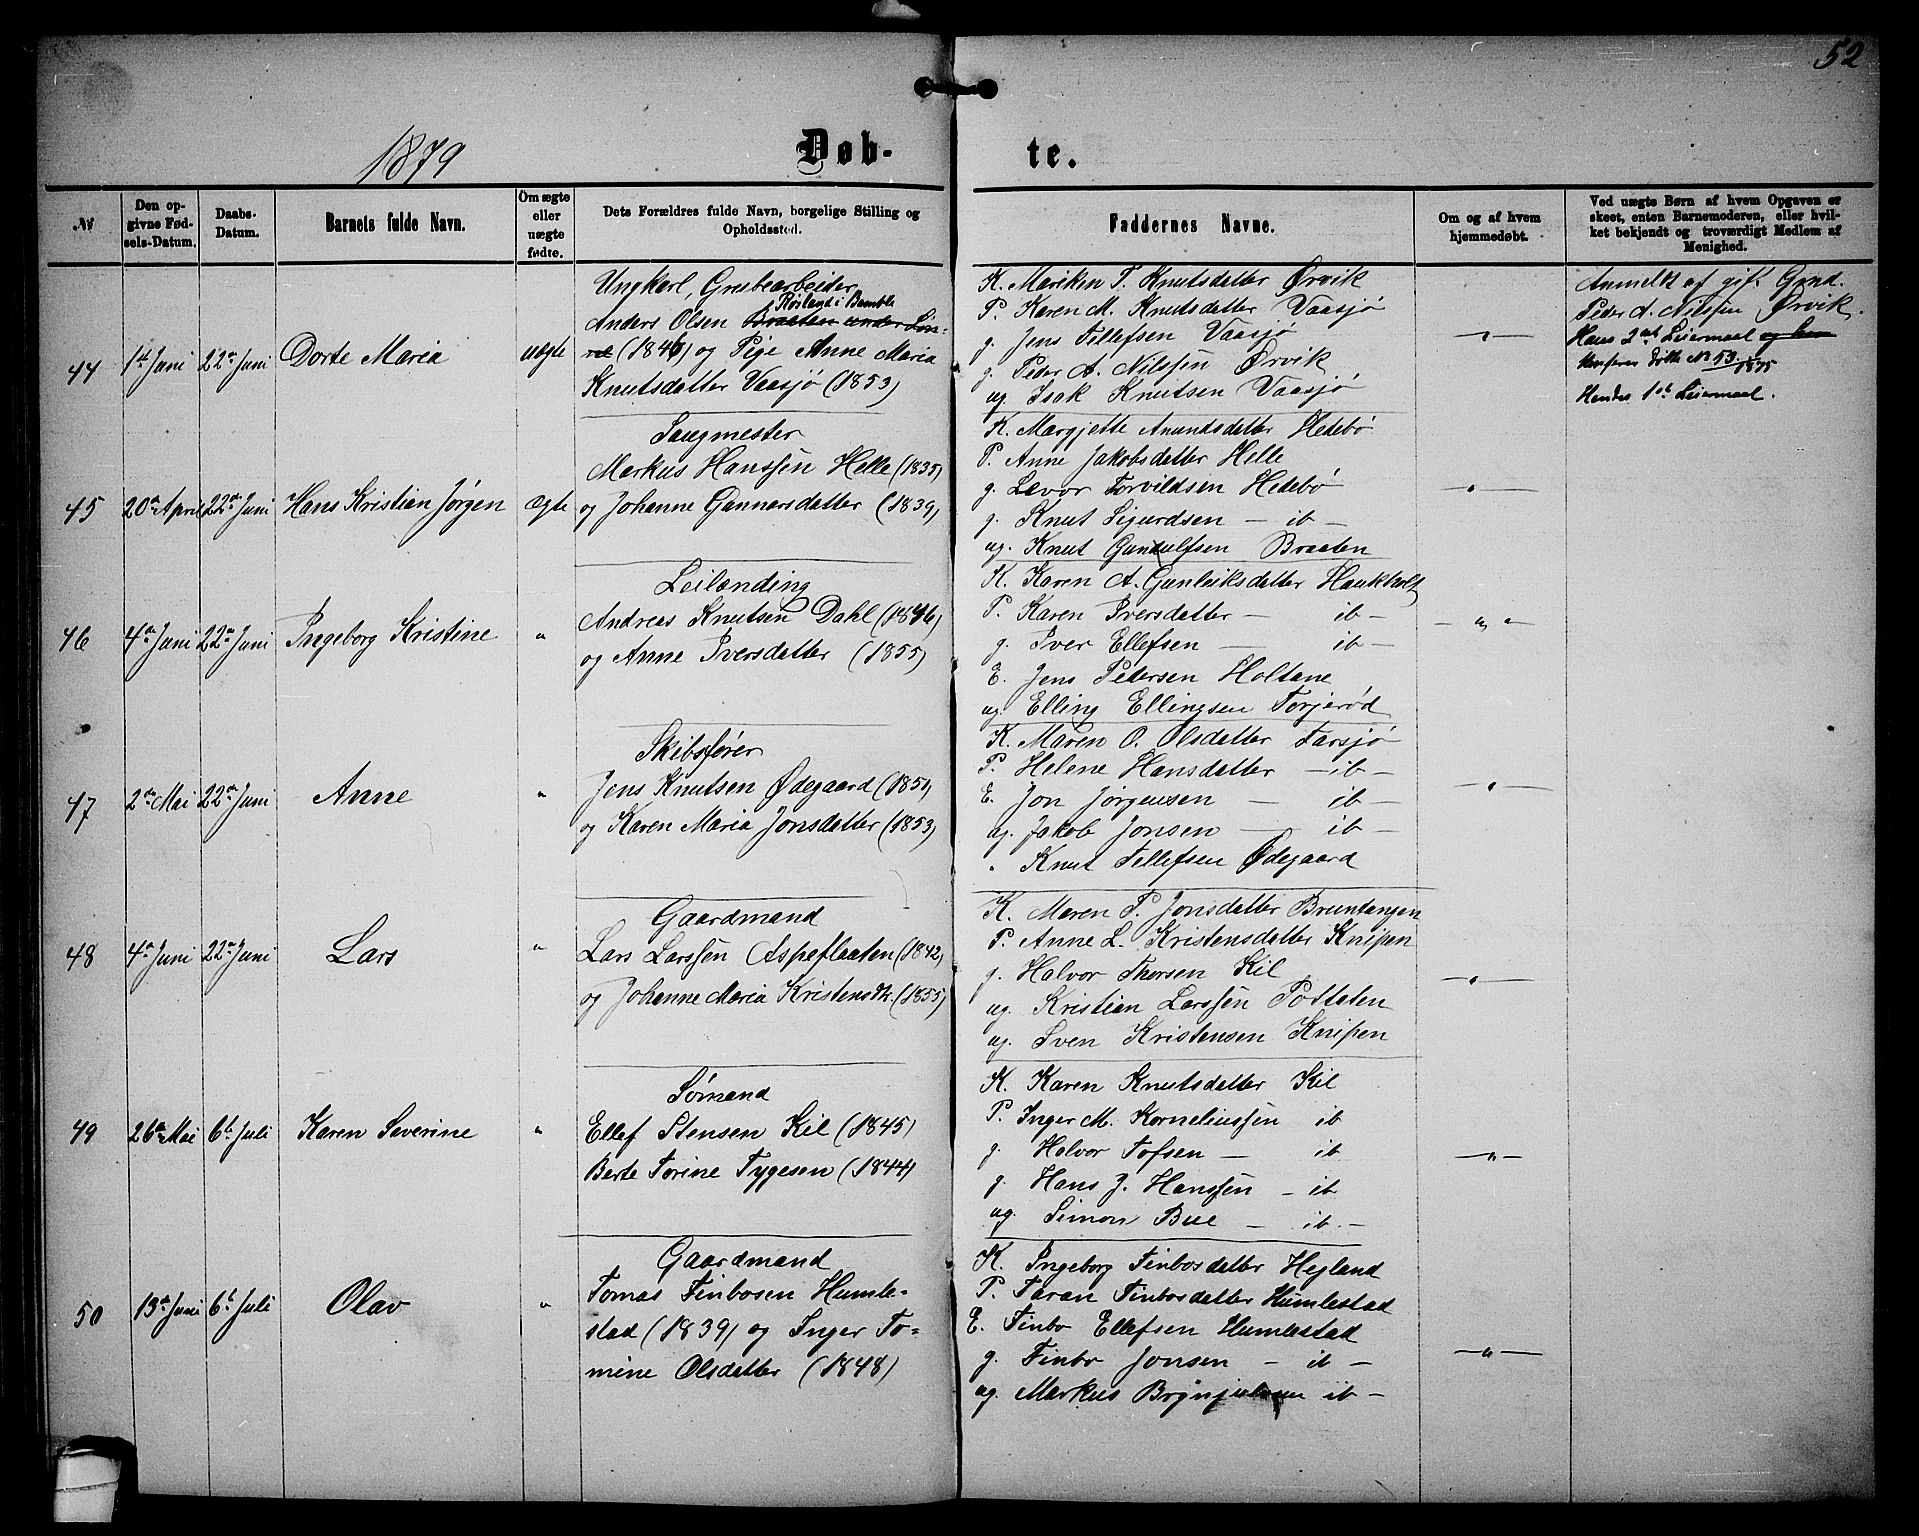 52
1879
Døb-
te.
№
Den op-
givne Fød-
sels-Datum.
Daabs-
Datum.
Barnets fulde Navn.
Om ægte
eller
uægte
fødte.
Dets Forældres fulde Navn, borgelige Stilling og
Opholdssted.
Faddernes Navne.
Om og af hvem
hjemmedøbt.
Ved uægte Børn af hvem Opgaven er
skeet, enten Barnemoderen, eller hvil-
ket bekjendt og troværdigt Medlem af
Menighed.
44
1ste Juni
22de Juni
Dorte Maria
uægte
Ungkarl, Grubearbeider
Røsland i Bamble
Anders Olsen Braaten under Lin-
(1846) og Pige Anne Maria
Knutsdatter Vaasjø (1853)
K. Mariken T. Knutsdatter Ørvik
P. Karen M. Knutsdatter Vaasjø
g. Jens Tellefsen Vaasjø
g. Peder A. Nilssen Ørvik
ug. Isak Knutsen Vaasjø
- " -
Anmeldt af gift Grnd.
Peder A. Nilssen Ørvik.
Hans 2det Leiermaal og
No 53 1875
Hendes 1ste Leiermaal.
45
20de April
22de Juni
Hans Kristian Jørgen
ægte
Saugmester
Markus Hanssen Helle (1835)
og Johanne Gunnarsdatter (1839)
K. Margjette Anundsdatter Hedebø
P. Anne Jakobsdatter Helle
g. Levor Torvildsen Hedebø
g. Knut Sigurdsen - ib -
ug. Knut Gundulfsen Braaten
- " -
46
4de Juni
22de Juni
Ingeborg Kristine
"
Leilending
Andreas Knutsen Dahl (1846)
og Anne Iversdatter (1855)
K. Karen A. Gunleiksdatter Haukholt
P. Karen Iversdatter - ib -
g. Iver Ellefsen - ib -
E. Jens Pedersen Holtane
ug. Elling Ellingsen Torjerød
- " -
47
2den Mai
22de Juni
Anne
"
Skibsfører
Jens Knutsen Ødegaard (1851)
og Karen Maria Jonsdatter (1853)
K. Maren O. Olsdatter Farsjø
P. Helene Hansdatter - ib -
E. Jon Jørgensen - ib -
ug. Jakob Jonsen - ib -
" Knut Tellefsen Ødegaard
- " -
48
4de Juni
22de Juni
Lars
"
Gaardmand
Lars Larssen Aspeflaaten (1842)
og Johanne Maria Kristensdtr. (1855)
K. Maren P. Jonsdatter Bruntangen
P. Anne L. Kristensdatter Knipen
g. Halvor Thorsen Kil
ug. Kristian Larssen Pottaten
ug. Sven Kristensen Knipen
- " -
49
26de Mai
6te Juli
Karen Severine
"
Sømand
Ellef Stensen Kil (1845)
Berte Torine Tygesen (1844)
K. Karen Knutsdatter Kil
P. Inger M. Korneliussen ib
g. Halvor Tofsen - ib
g. Hans J. Hanssen - ib
ug. Simon Bue - ib -
- " -
50
13de Juni
6te Juli
Olav
"
Gaardmand
Tomas Finbosen Humle-
stad (1839) og Inger To-
mine Olsdatter (1848)
K. Ingeborg Finbosdatter Hegland
P. Taran Finbosdatter Humlestad
E. Finbo Ellefsen Humlestad
g. Finbo Jonsen - ib -
ug. Markus Brynjulvsen ib -
- " -